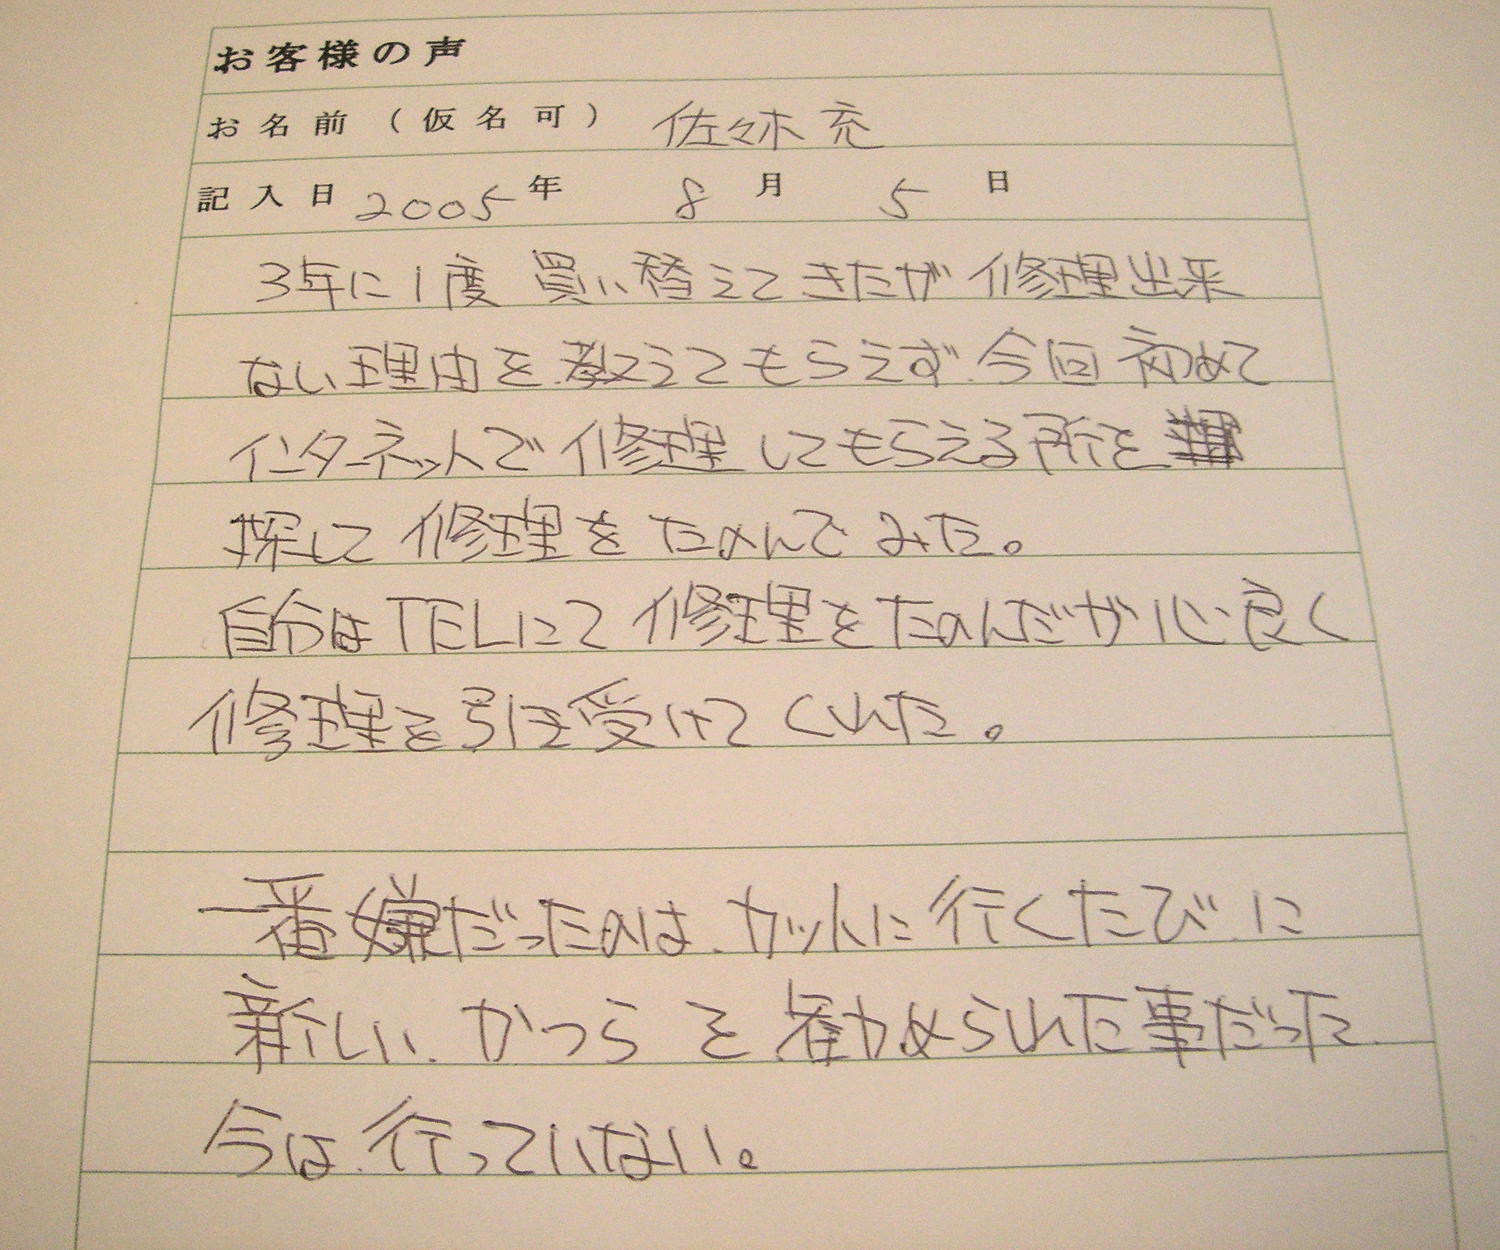 お客様の声
お名前（仮名可） 佐々木充
記入日 2005年 8月 5日
3年に1度 買い替えてきたが 修理出来
ない理由を教えてもらえず 今回初めて
インターネットで 修理してもらえる所を
探して 修理を たのんでみた。
自分はTELにて 修理をたのんだが 心良く
修理を引き受けてくれた。
一番嫌だったのは、カットに行くたびに
新しい かつらを勧められた事だった
今は、行っていない。